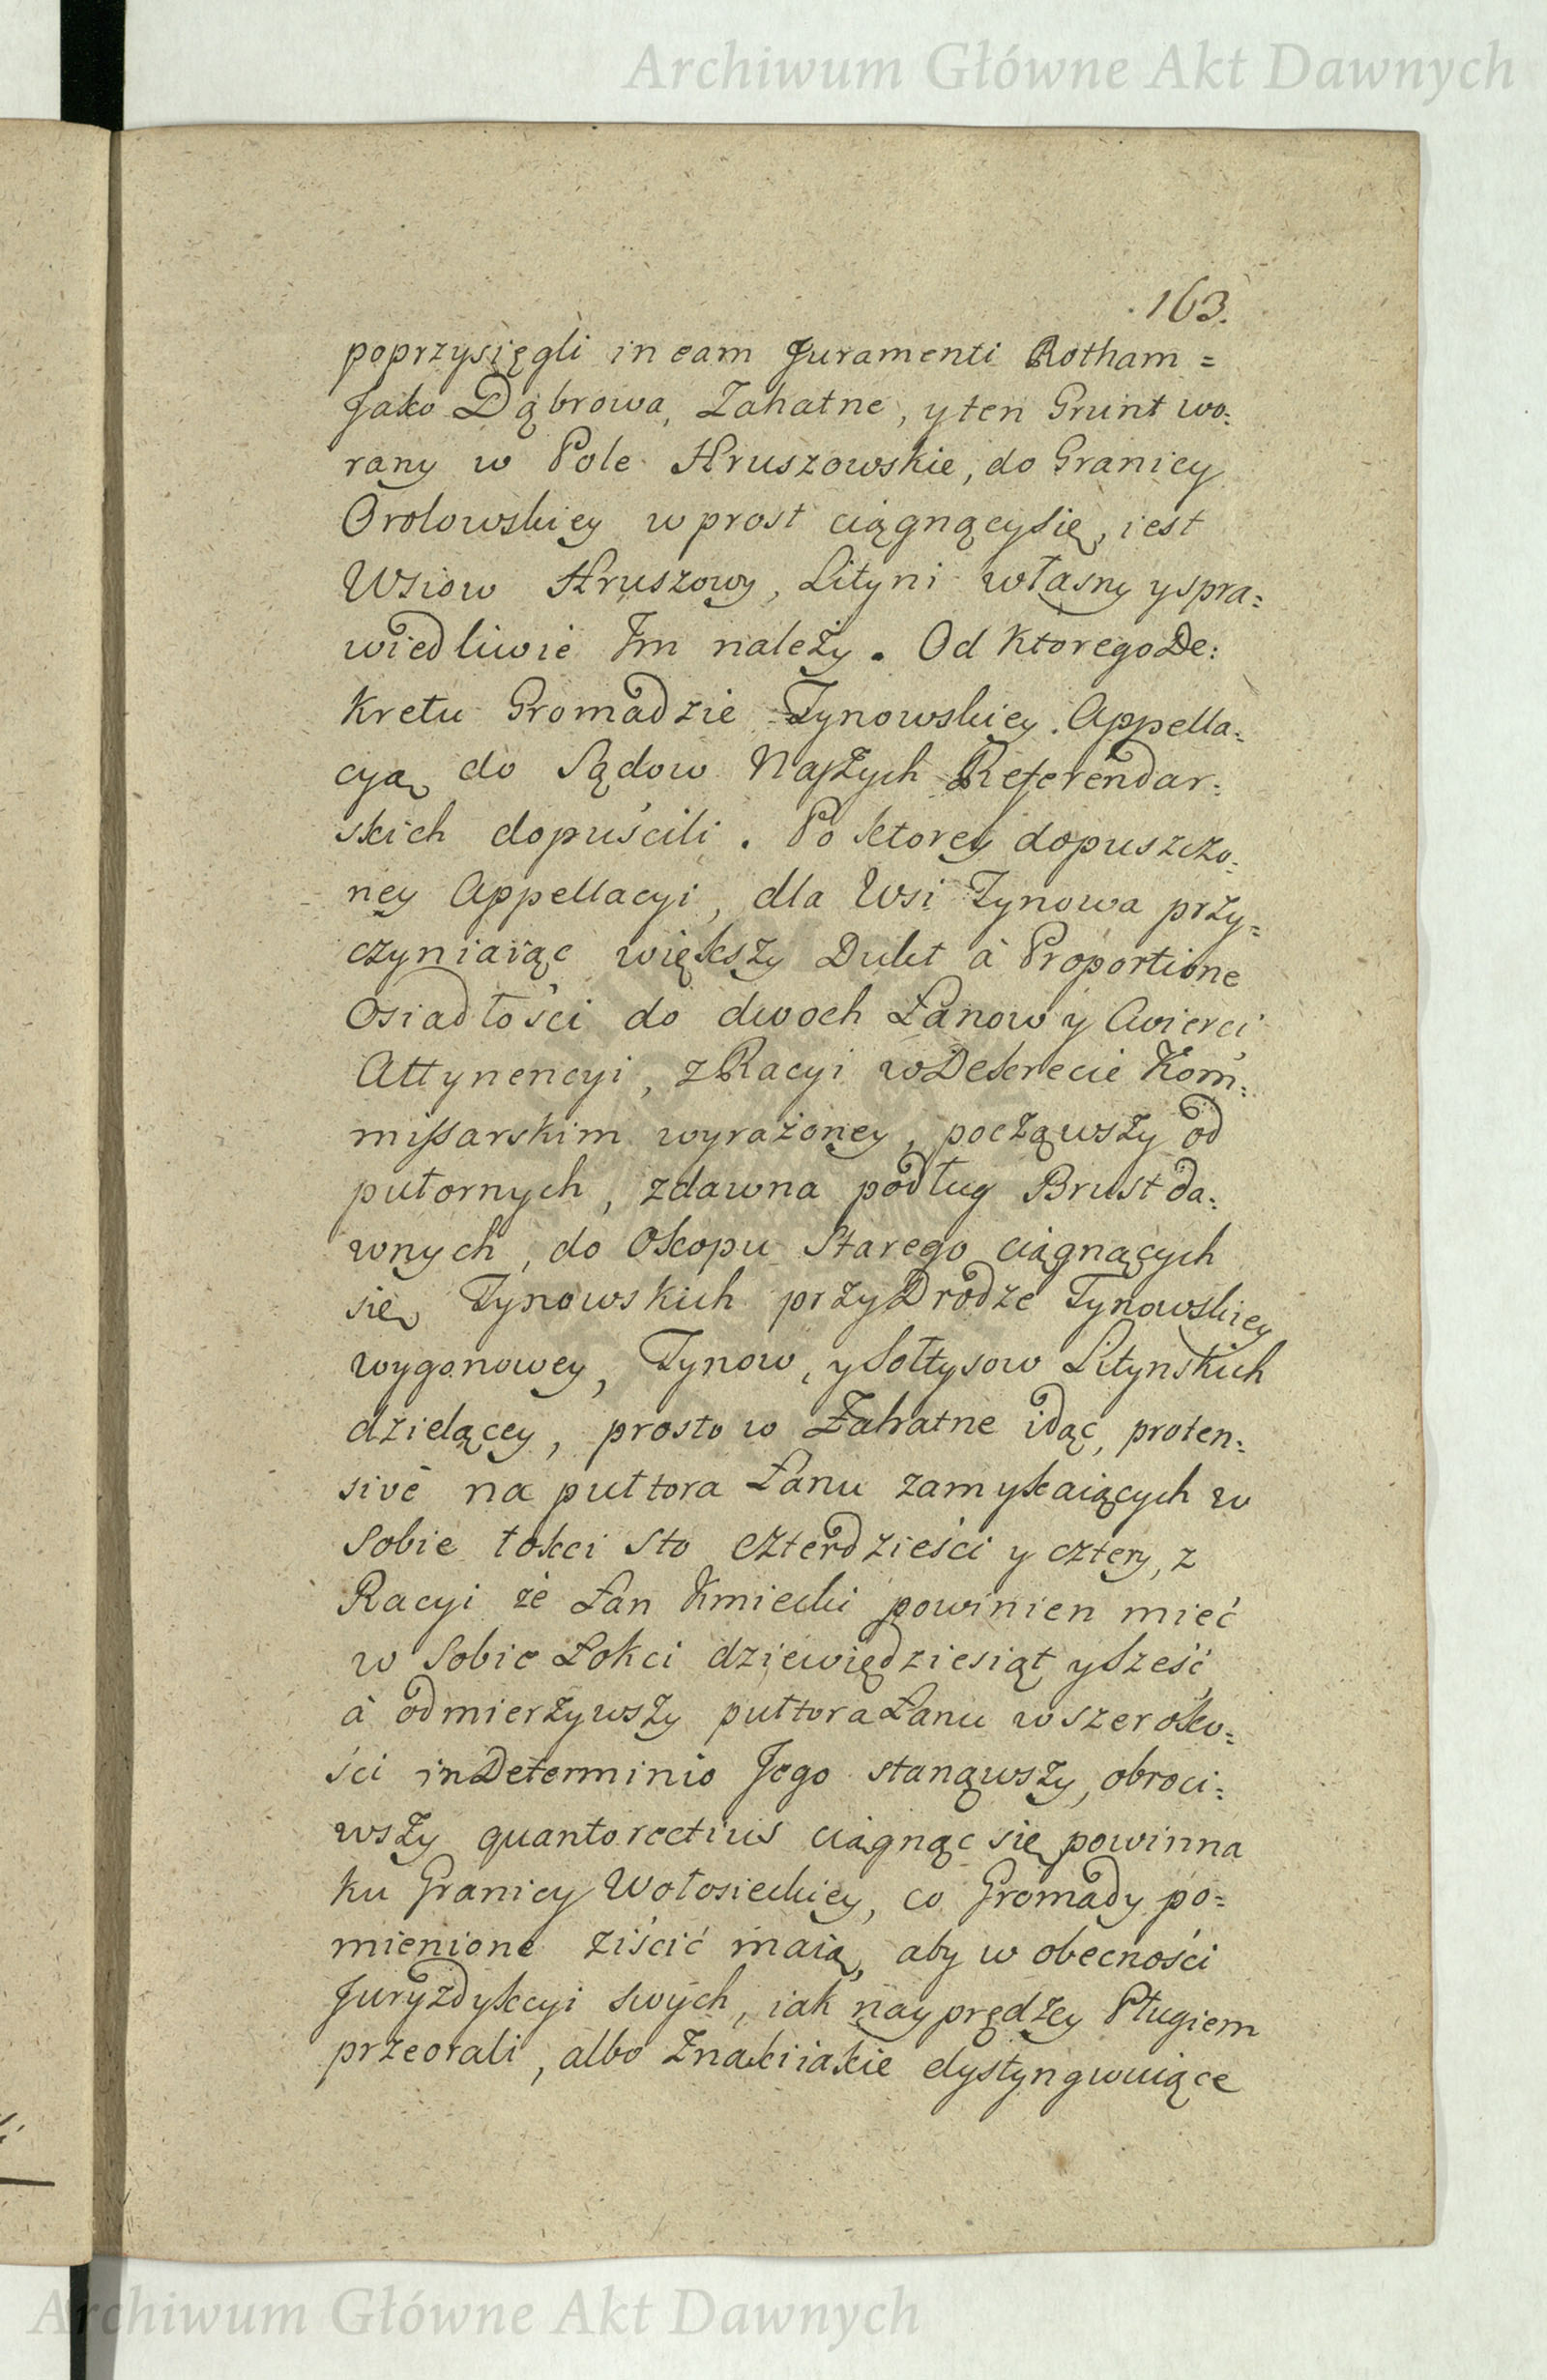 Archiwum Główne Akt Dawnych
163.
poprzysięgli in eam Juramenti Rotham =
Jako Dąbrowa, Zahatne, y ten Grunt wo:
rany w Pole Hruszowskie, do Granicy
Orolowskiey w prost ciągnący się, iest
Wsiow Hruszowy, Lityni własny y spra:
wiedliwie Im należy. Od ktorego De:
kretu Gromadzie Tynowskiey. Appella:
cyą do Sądow Naszych Referendar:
skich dopuścili. Po ktorey dopuszczo:
ney Appellacyi, dla Wsi Tynowa przy=
czyniaiąc większy Dukt à Proportione
Osiadłości do dwoch Łanow y Cwierci
Attynencyi, z Racyi w Dekrecie Kom:
missarskim wyrażoney, począwszy od
pułornych, zdawna podług Brust da:
wnych, do Okopu Starego ciągnących
się Tynowskich przy Drodze Tynowskiey
wygonowey, Tynow, y Sołtysow Litynskich
dzielącey, prosto w Zahatne idąc, proten:
sivè na pułtora Łanu zamykaiących w
Sobie łokci Sto czterdzieści y cztery, z
Racyi że Łan Kmiecki powinien mieć
w Sobie Łokci dziewiędziesiąt y Sześć
à odmierzywszy pułtora Łanu w szeroko=
ści in Determinio Jego stanąwszy, obroci:
wszy quanto rectius ciągnąc się powinna
ku Granicy Wołosieckiey, co Gromady po=
mienione ziścić maią, aby w obecności
Juryzdykcyi swych, iak nayprędzey Pługiem
przeorali, albo Znaki iakie dystyngwuiące
Archiwum Główne Akt Dawnych